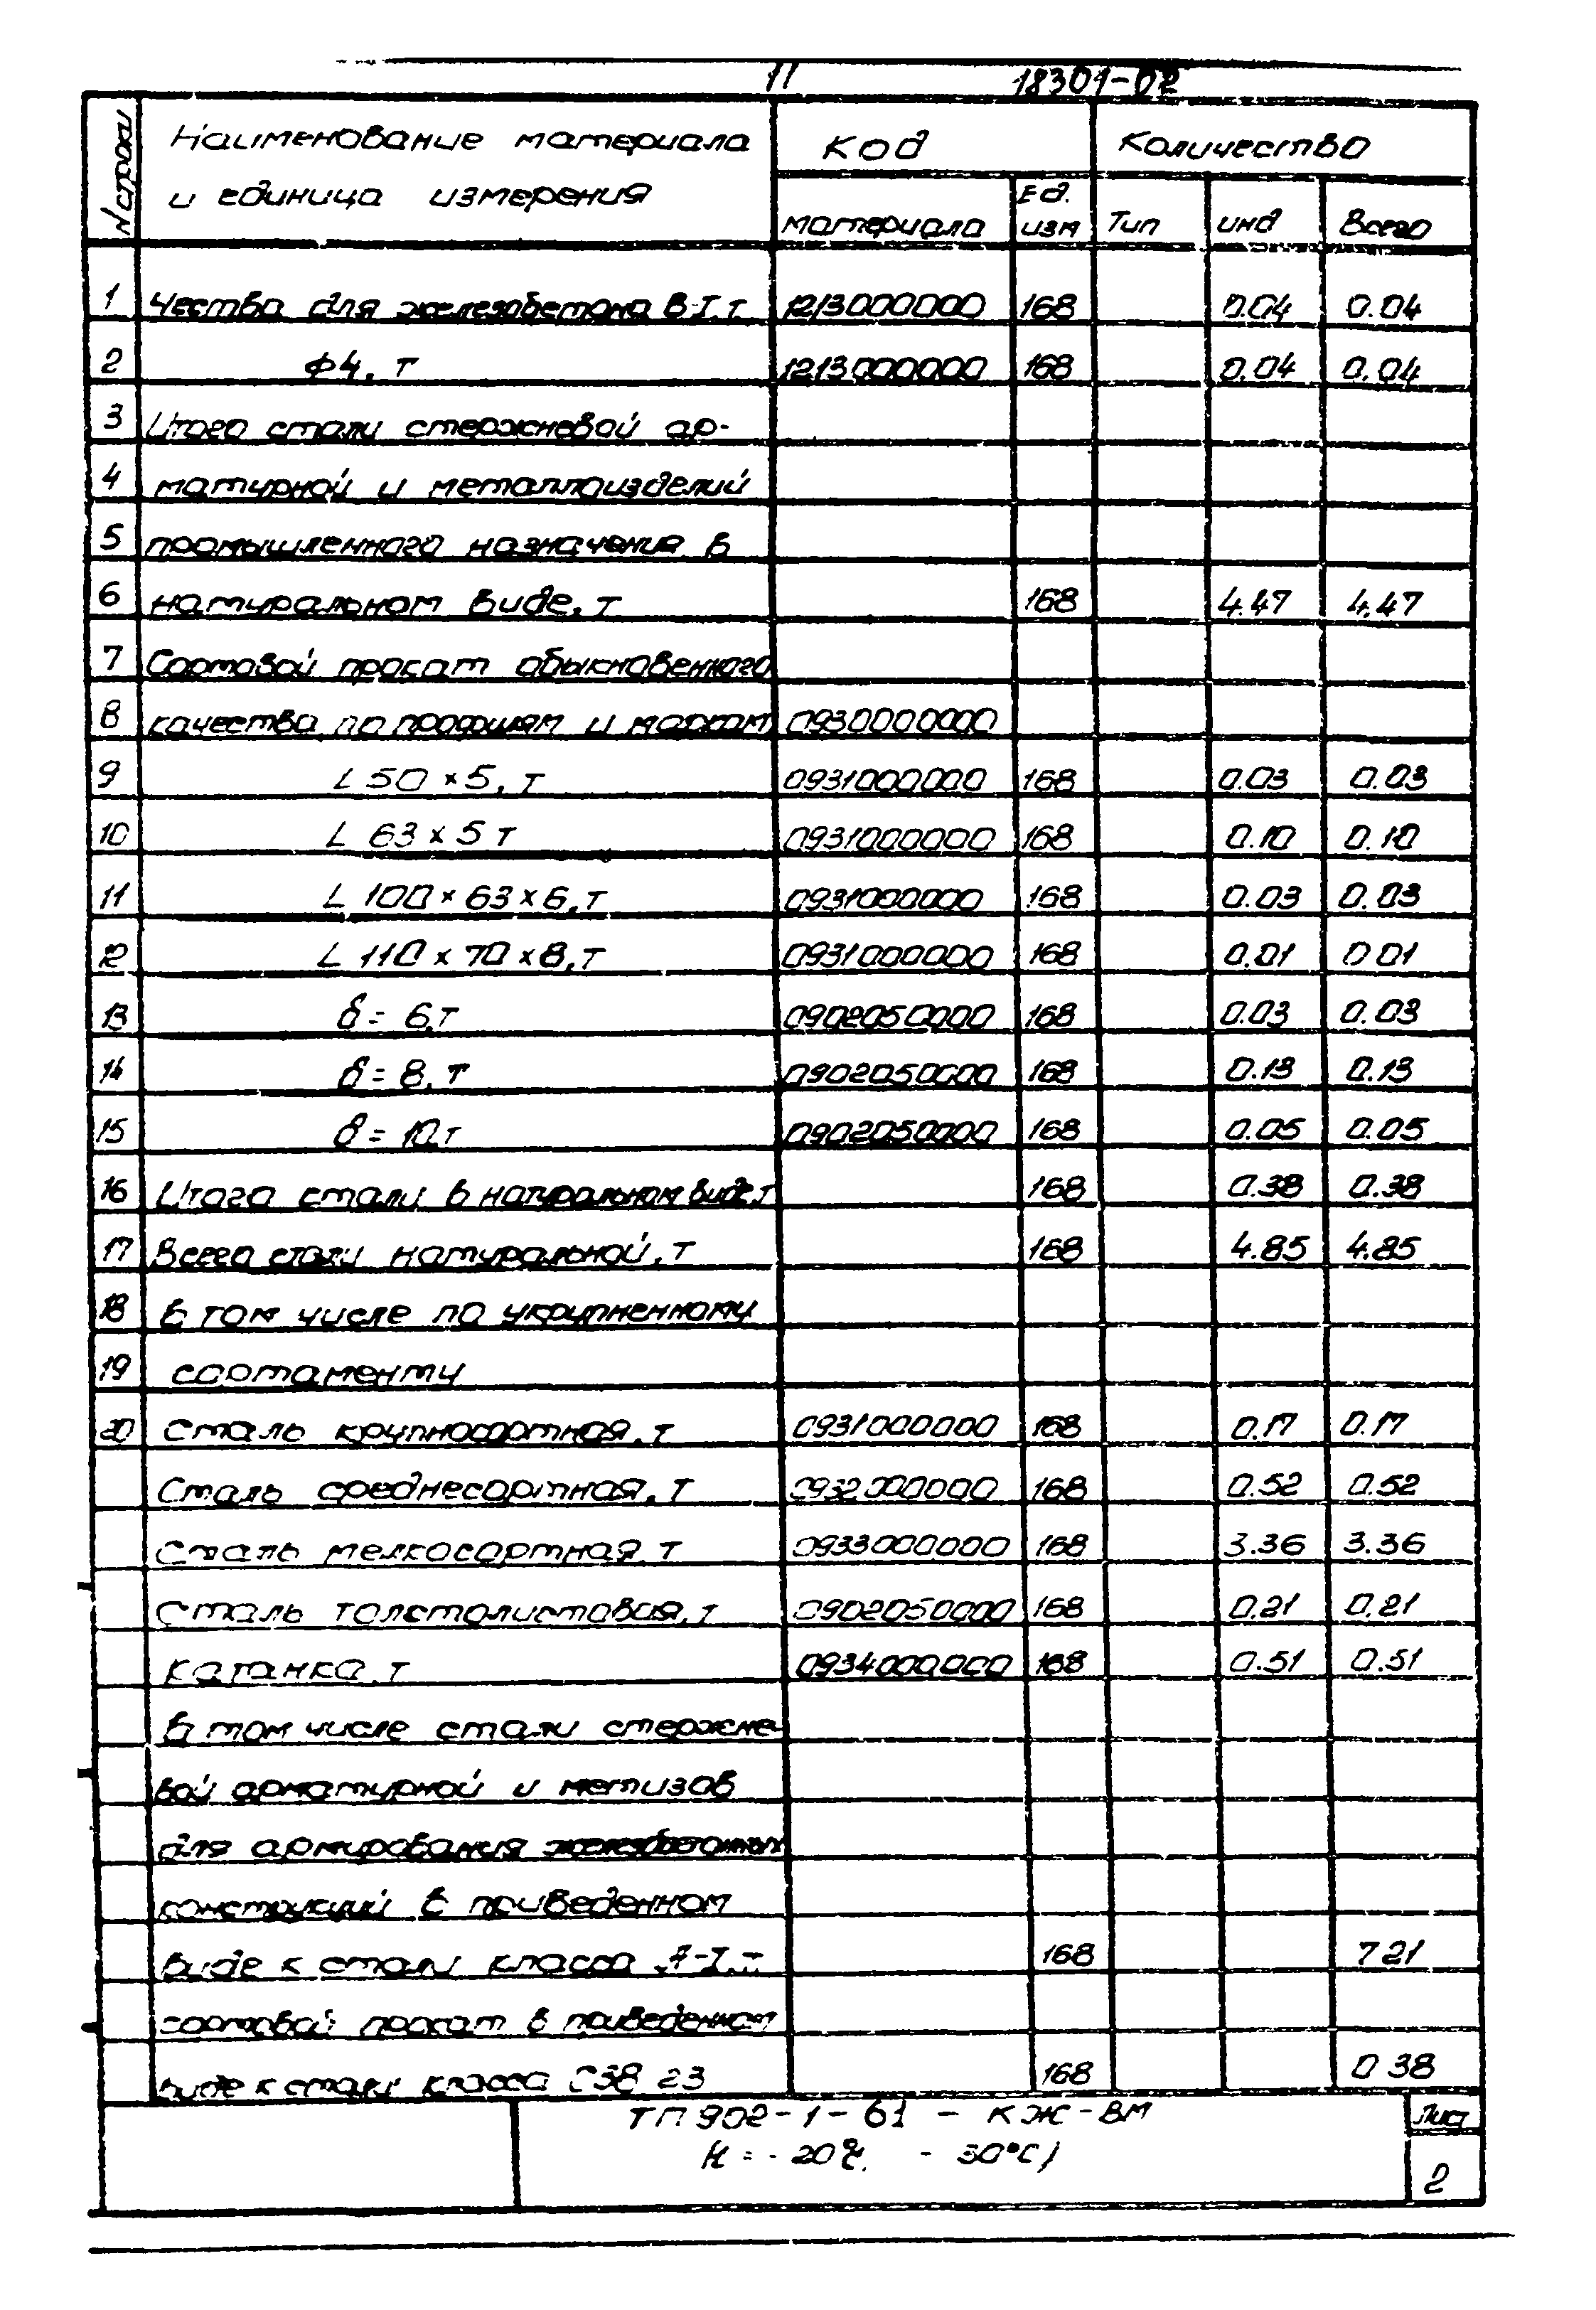 11 18301-02
N строки Наименование материала и единица измерения Код Количество
материала Ед. изм Тип инд Всего
1 чества для железобетона В-I, т 1213000000 168 0.04 0.04
2 ф4, т 1213000000 168 0.04 0.04
3 Итого стали стержневой ар-
4 матурной и металлоизделий
5 промышленного назначения в
6 натуральном виде, т 168 4.47 4.47
7 Сортовой прокат обыкновенного
8 качества по профилям и маркам 0930000000
9 L 50 × 5, т 0931000000 168 0.03 0.03
10 L 63 × 5 т 0931000000 168 0.10 0.10
11 L 100 × 63 × 6, т 0931000000 168 0.03 0.03
12 L 110 × 70 × 8, т 0931000000 168 0.01 0 01
13 δ = 6, т 0902050000 168 0.03 0.03
14 δ = 8, т 0902050000 168 0.13 0.13
15 δ = 10, т 0902050000 168 0.05 0.05
16 Итого стали в натуральном виде, т 168 0.38 0.38
17 Всего стали натуральной, т 168 4.85 4.85
18 В том числе по укрупненному
19 сортаменту
20 Сталь крупносортная, т 0931000000 168 0.17 0.17
Сталь среднесортная, т 0932000000 168 0.52 0.52
Сталь мелкосортная, т 0933000000 168 3.36 3.36
Сталь толстолистовая, т 0902050000 168 0.21 0.21
Катанка, т 0934000000 168 0.51 0.51
В том числе стали стержне
вой арматурной и метизов
для армирования железобетонных
конструкций в приведенном
виде к стали класса А-I, т 168 7 21
сортовой прокат в приведенном
виде к стали класса С38 23 168 0 38
ТП 902-1-61 - КЖ-ВМ Лист
- 20°С, - 30°С) 2